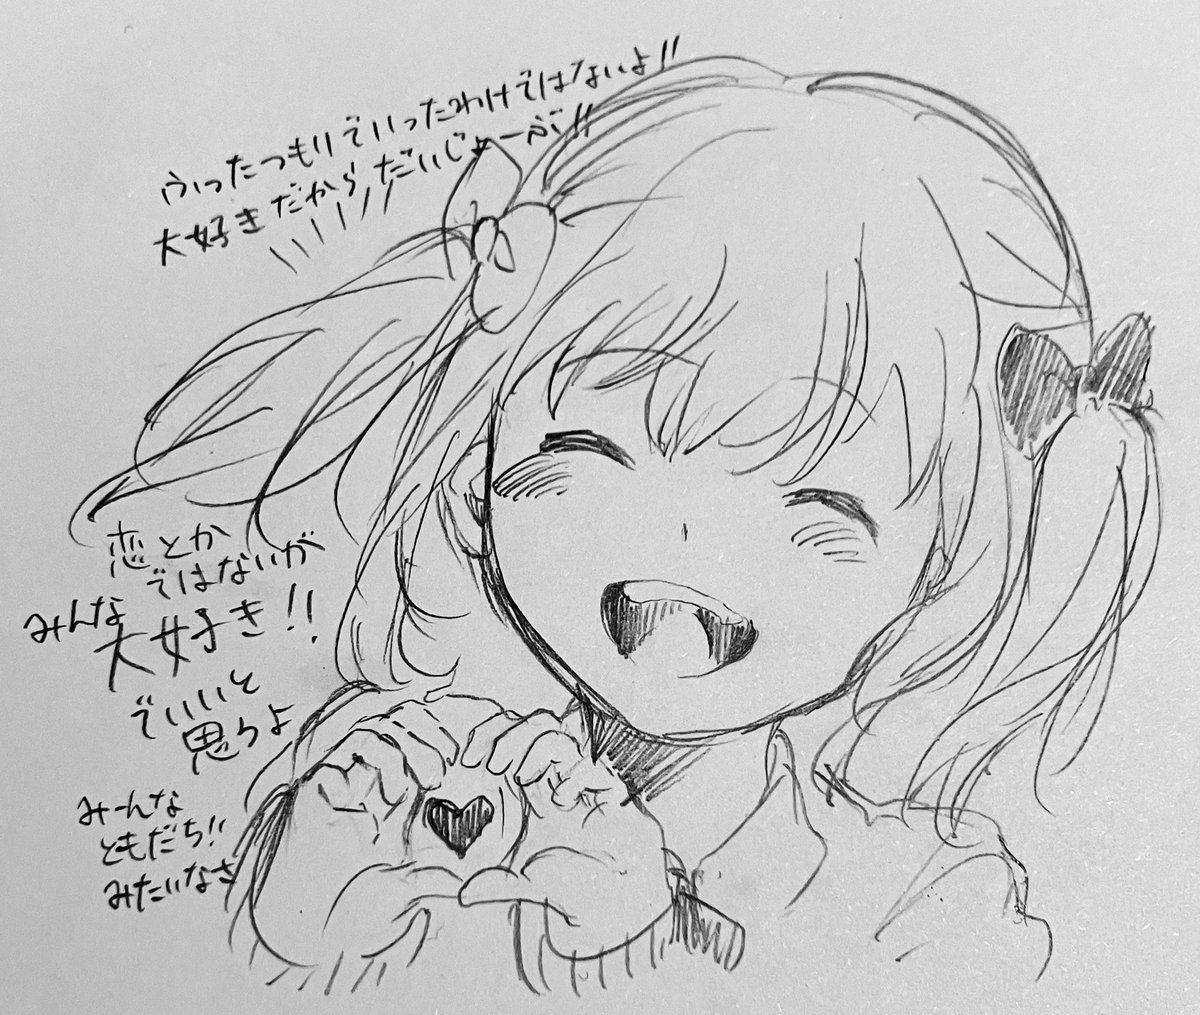 ふったつもりでいったわけではないよ!!
大好きだからだいじょーぶ!!
恋とか
ではないが
みんな
大好き!!
でいいと
思うよ
みーんな
ともだち!!
みたいなさ